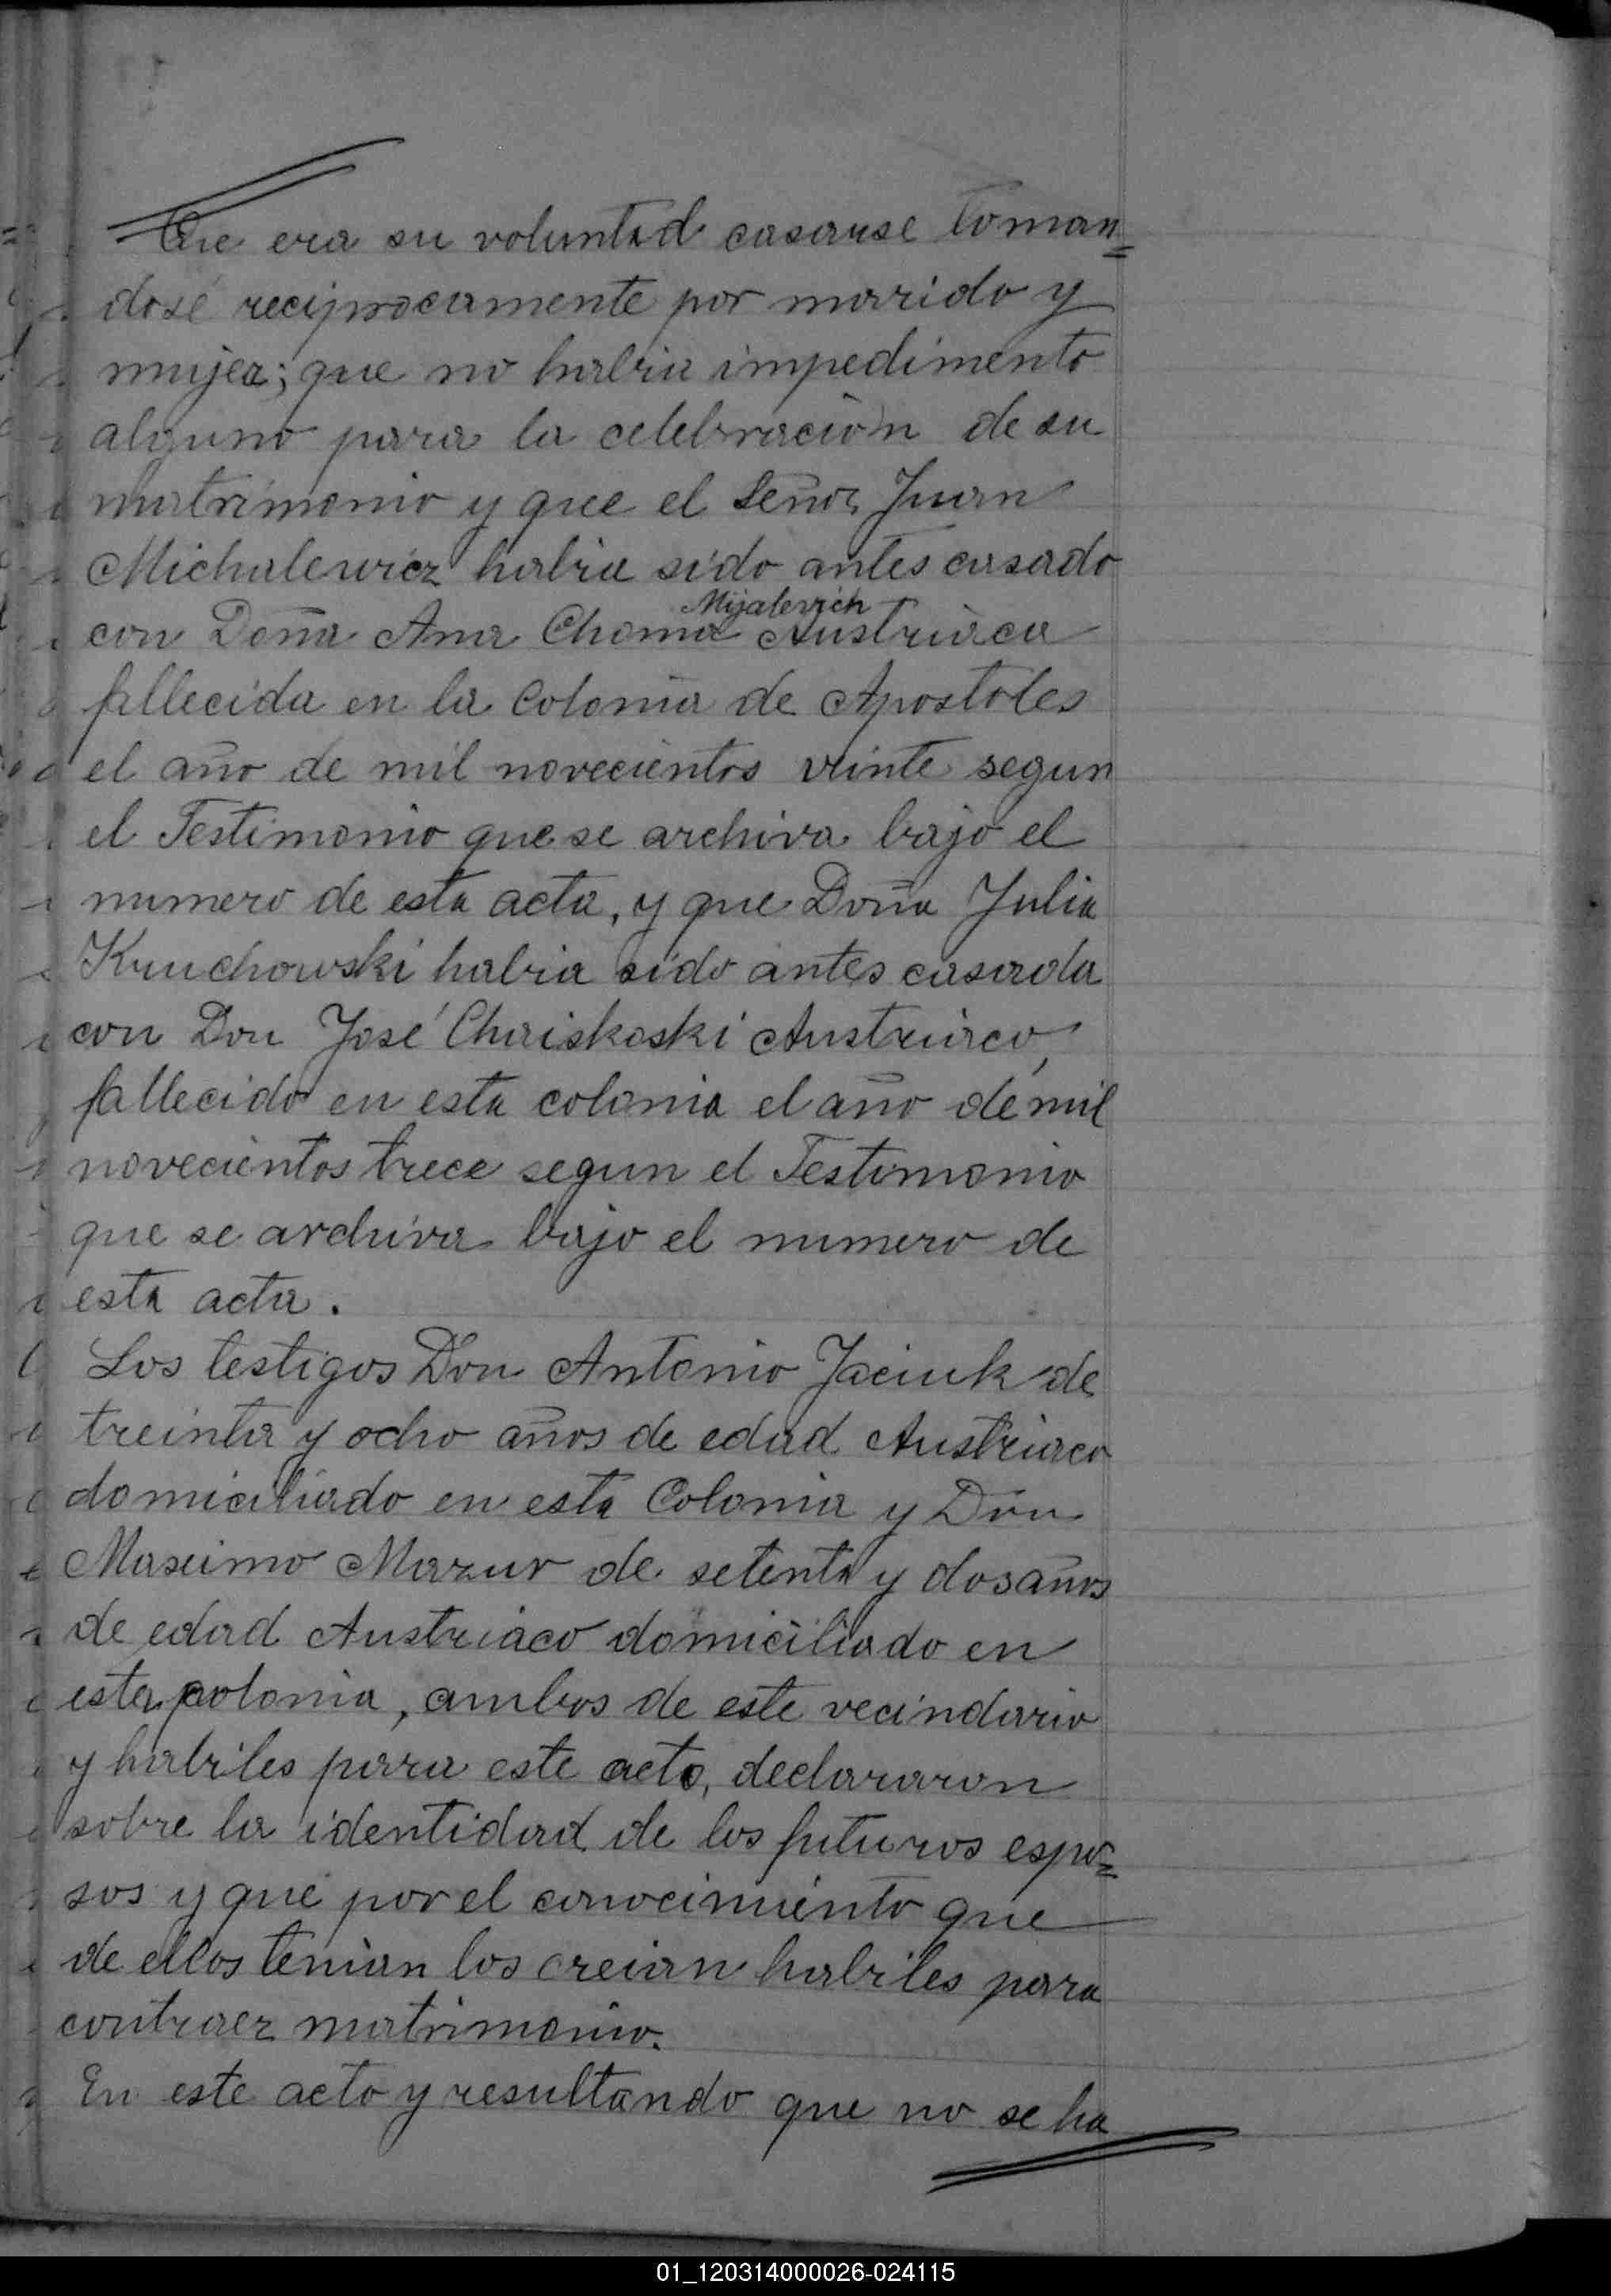 Que era su voluntad casarse toman=
dosé reciprocamente por marido y
mujer; que no habia impedimento
alguno para la celebración de su
matrimonio y que el Señor Juan
Michalewicz habia sido antes casado
Mijalevich
con Doña Ana Choma Austriaca
fallecida en la Colonia de Apostoles
el año de mil novecientos veinte segun
el Testimonio que se archiva bajo el
numero de esta acta, y que Doña Julia
Kruchowski habia sido antes casada
con Don José Chaiskoski Austriaco,
fallecido en esta colonia el año de mil
novecientos trece segun el Testimonio
que se archiva bajo el numero de
esta acta.
Los testigos Don Antonio Jaciuk de
treinta y ocho años de edad Austriaco
domiciliado en esta Colonia y Don
Masimo Mazur de setenta y dos años
de edad Austriaco domiciliado en
esta colonia, ambos de este vecindario
y habiles para este acto, declararon
sobre la identidad de los futuros espo=
sos y que por el conocimiento que
de ellos tenian los creian habiles para
contraer matrimonio.
En este acto y resultando que no se ha
01_120314000026-024115